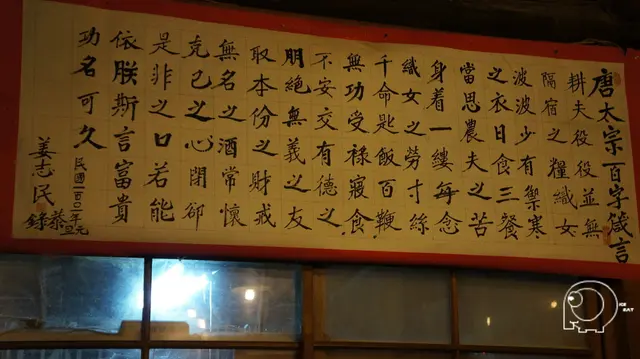 唐太宗百字箴言
耕夫役役並無
隔宿之糧織女
波波少有禦寒
之衣日食三餐
當思農夫之苦
身着一縷每念
織女之勞寸絲
千命匙飯百鞭
無功受祿寢食
不安交有德之
朋絕無義之友
取本份之財戒
無名之酒常懷
克己之心閉卻
是非之口若能
依朕斯言富貴
功名可久
民國一百年元旦
姜志民恭錄